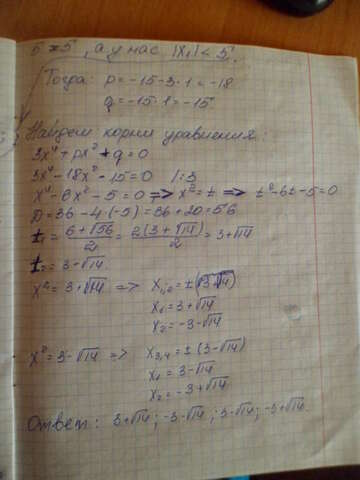 5 ≠ 5, а у нас |x₁| < 5.
Тогда: p = -15-3·1 = -18
q = -15·1 = -15
Найдем корни уравнения:
3x⁴ + px² + q = 0
3x⁴ - 18x² - 15 = 0 | :3
x⁴ - 6x² - 5 = 0 => x² = t => t² - 6t - 5 = 0
D = 36 - 4·(-5) = 36 + 20 = 56
t₁ = (6+√56)/2 = 2(3+√14)/2 = 3+√14
t₂ = 3-√14
x² = 3+√14 => x₁,₂ = ±(3+√14)
x₁ = 3+√14
x₂ = -3-√14
x² = 3-√14 => x₃,₄ = ±(3-√14)
x₁ = 3-√14
x₂ = -3+√14
Ответ: 3+√14; -3-√14; 3-√14; -3+√14.